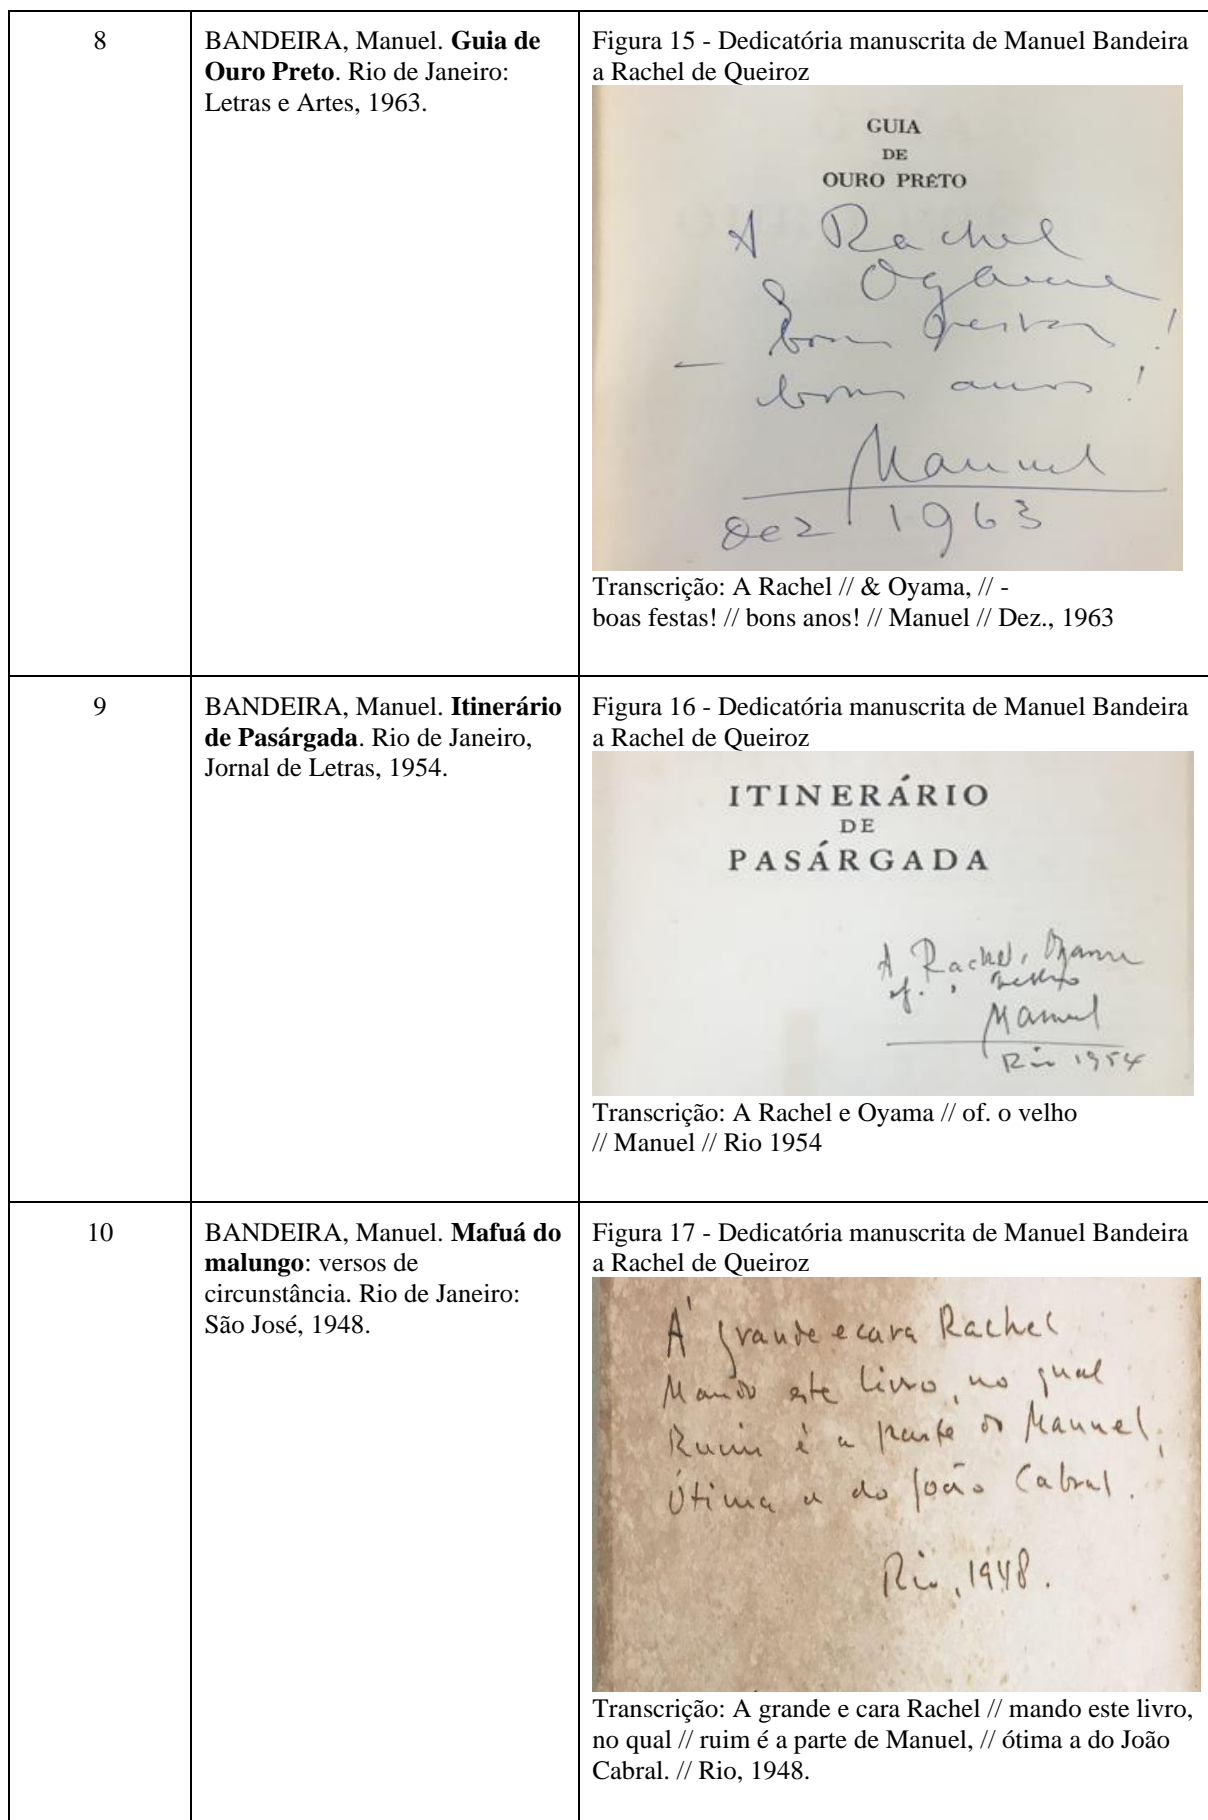 8
BANDEIRA, Manuel. Guia de
Ouro Preto. Rio de Janeiro:
Letras e Artes, 1963.
Figura 15 - Dedicatória manuscrita de Manuel Bandeira
a Rachel de Queiroz
GUIA
DE
OURO PRÊTO
A Rachel
& Oyama
boas festas!
— bons anos!
Manuel
Dez 1963
Transcrição: A Rachel // & Oyama, // -
boas festas! // bons anos! // Manuel // Dez., 1963
9
BANDEIRA, Manuel. Itinerário
de Pasárgada. Rio de Janeiro,
Jornal de Letras, 1954.
Figura 16 - Dedicatória manuscrita de Manuel Bandeira
a Rachel de Queiroz
ITINERÁRIO
DE
PASÁRGADA
A Rachel e Oyama
of. o velho
Manuel
Rio 1954
Transcrição: A Rachel e Oyama // of. o velho
// Manuel // Rio 1954
10
BANDEIRA, Manuel. Mafuá do
malungo: versos de
circunstância. Rio de Janeiro:
São José, 1948.
Figura 17 - Dedicatória manuscrita de Manuel Bandeira
a Rachel de Queiroz
À grande e cara Rachel
Mando este livro, no qual
Ruim é a parte do Manuel,
Ótima a do João Cabral.
Rio, 1948.
Transcrição: A grande e cara Rachel // mando este livro,
no qual // ruim é a parte de Manuel, // ótima a do João
Cabral. // Rio, 1948.